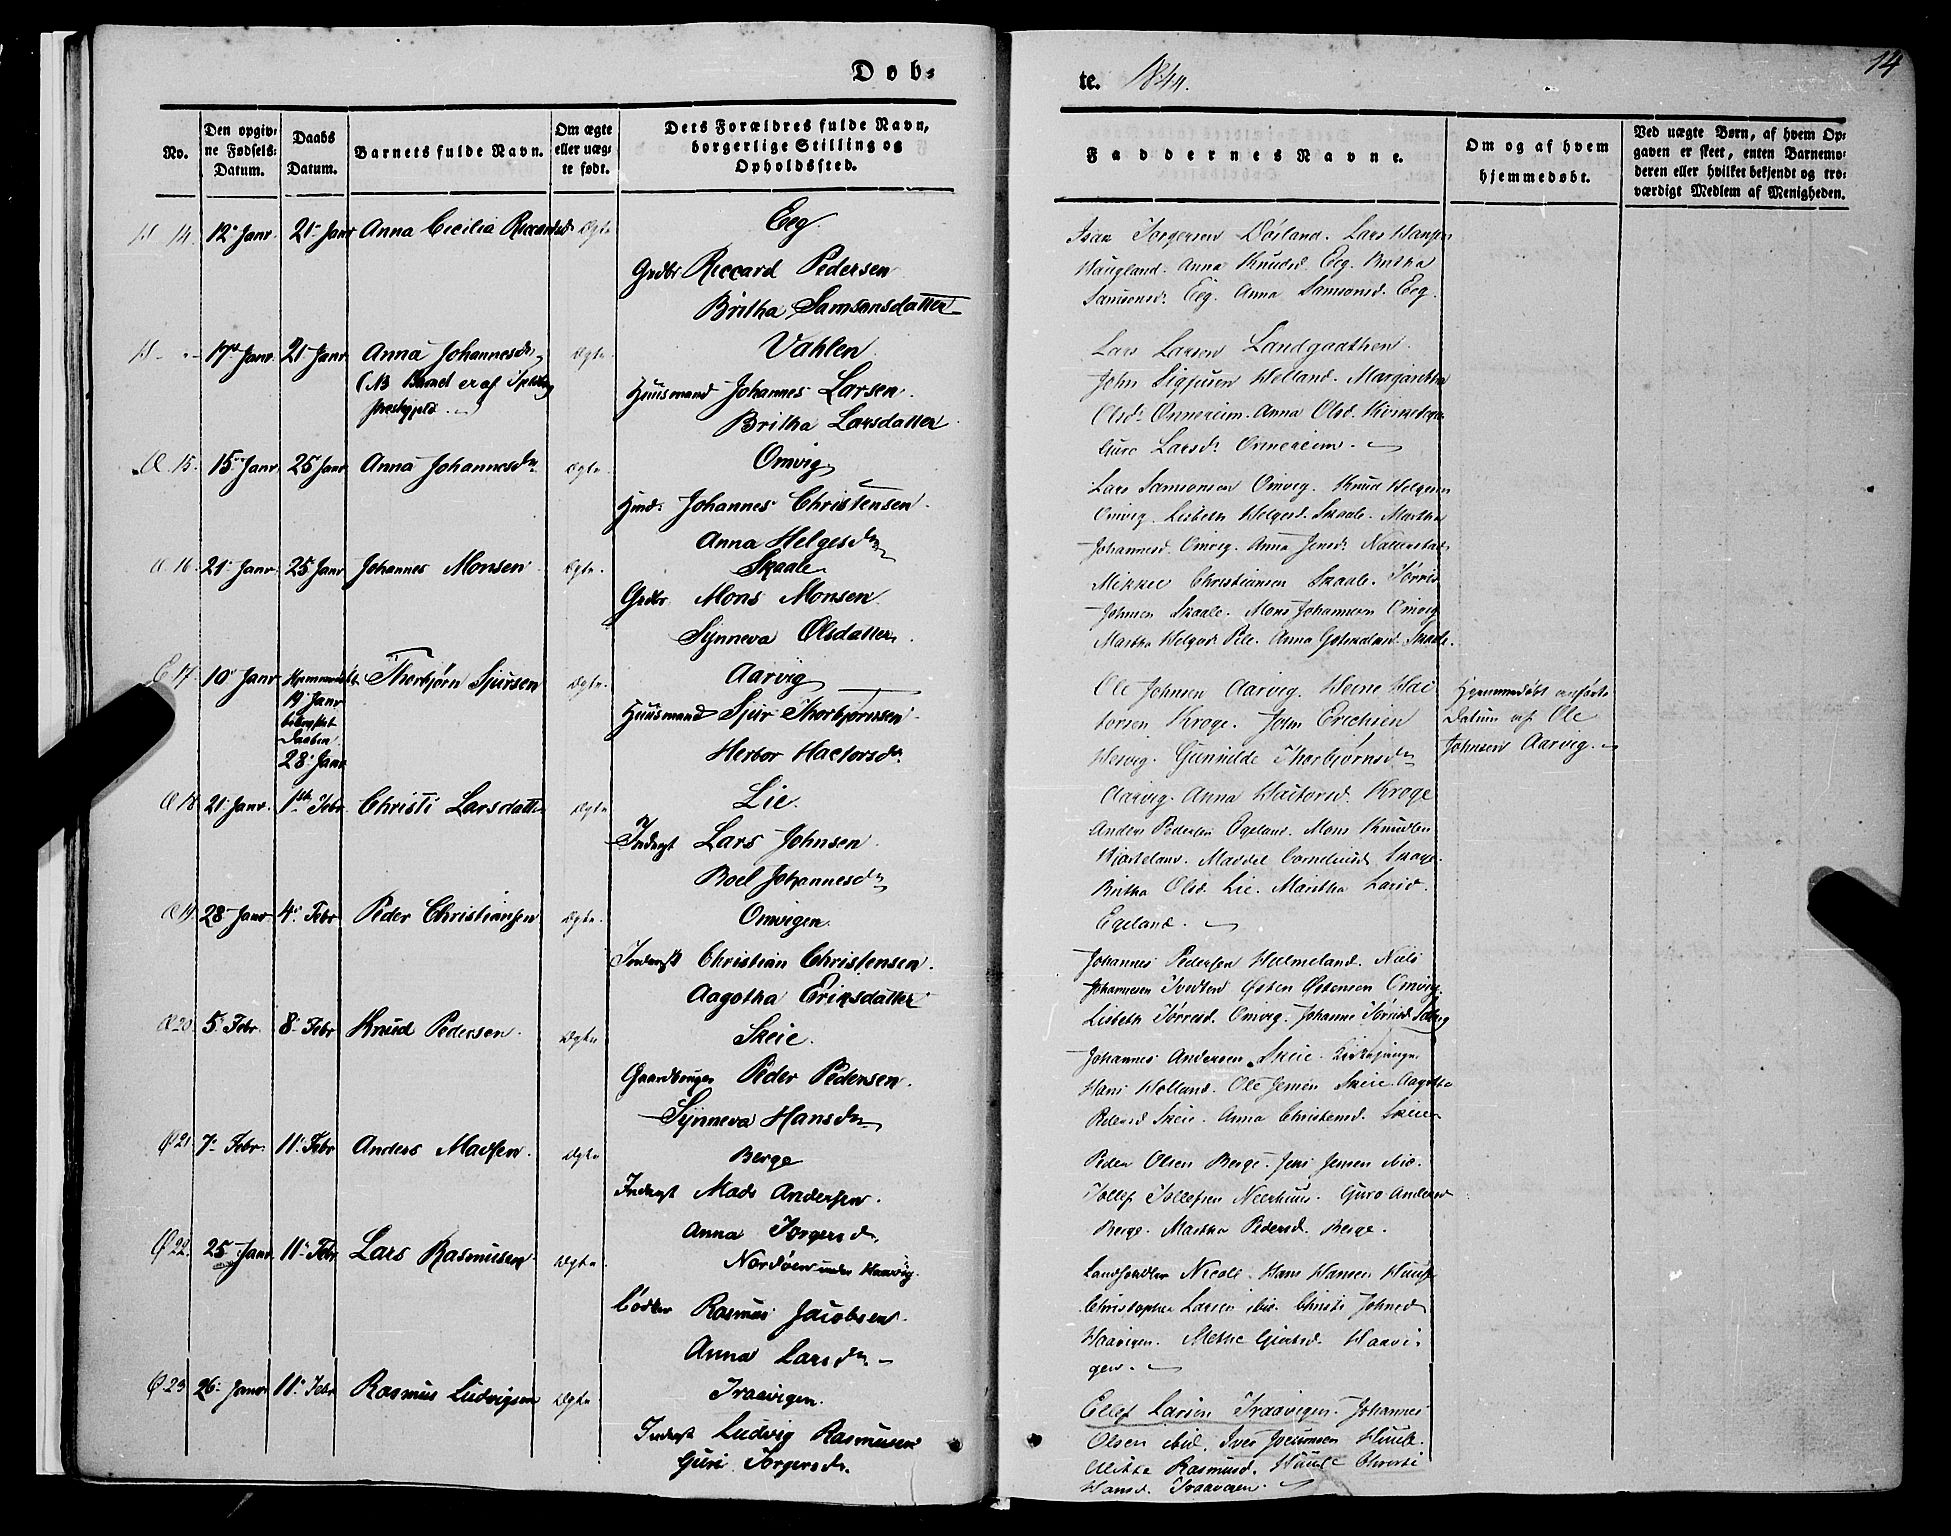 Døb-
No.
Den opgiv-
ne Fødsels-
Datum.
Daabs
Datum.
Barnets fulde Navn.
Om ægte
eller uæg-
te født.
Dets Forældres fulde Navn,
borgerlige Stilling og
Opholdssted.
14. 12 Janr. 21 Janr Anna Cecilia Ægte Eeg
Grdbr Riccard Pedersen
Britha Samsonsdatter
17 Janr 21 Janr Anna Johannesdr Ægte Vahlen
(NB Barnet er af
Huusmand Johannes Larsen
Britha Larsdatter
15. 15 Janr 25 Janr Anna Johannesdr Ægte Omvig
Hmd: Johannes Christensen
Anna Helgesdr
16. 21 Janr 25 Janr Johannes Monsen Ægte Skaale
Grdbr Mons Monsen
Synneva Olsdatter
17 10 Janr Hjemmedøbt Thorbjørn Sjursen Ægte Aarvig
Janr
Daaben
28 Janr
Huusmand Sjur Thorbjørnsen
Herbor Hactorsdr
18 21 Janr. 1ste Febr. Christi Larsdatter Ægte Lie.
Inderst Lars Johnsen
Boel Johannesdr
19. 28 Janr 4 Febr Peder Christiansen Ægte Omvigen
Inderst Christian Christensen.
Aagotha Eriksdatter
20. 5 Febr. 8 Febr Knud Pedersen. Ægte Skeie.
Gaardbruger Peder Pedersen.
Synneva Hansdr
21. 7 Febr. 11 Febr Anders Madsen. Ægte Berge
Inderst Mads Andersen.
Anna Torgersdr.
22. 25 Janr 11 Febr Lars Rasmusen Ægte Nordøen under Haavig.
Bødker Rasmus Jacobsen.
Anna Larsdr
23 26 Janr 11 Febr Rasmus Ludvigsen Ægte Traavigen.
Inderst Ludvig Rasmusen
Guri Torgersdr.
te. 1844.
14
Faddernes Navne.
Om og af hvem
hjemmedøbt.
Ved uægte Børn, af hvem Op-
gaven er skeet, enten Barnemo-
deren eller hvilket bekjendt og tro-
værdigt Medlem af Menigheden.
Isak Torgersen Døsland. Lars Hansen
Haugland. Anna Knudsd. Eeg. Britha
Samsonsd. Eeg. Anna Samsonsd. Eeg.
Lars Larsen Landgaathen.
John Sigjusen Helland. Margaretha
Olsdr Ommereim. Anna Olsd.
Guro Larsdr Ommereim.
Lars Samsonsen Omvig. Knud Helgesen
Omvig. Lisbeth Helgesd. Skaale. Martha
Johannesd. Omvig. Anna Jensdr
Mikkel Christiansen Skaale. Tørris
Johnsen Skaale. Mons Johannesen Omvig
Martha Helgesdr Anna Skaale.
Ole Johnsen Aarvig. Heine
torsen Kroge. John Erichsen
Hervig. Gunnilde Thorbjørnsdr
Aarvig. Anna Kroge
Hjemmedøbt anførte
Datum af Ole
Johnsen Aarvig.
Anders Pedersen Egeland. Mons Knudsen
Britha Olsd. Lie. Martha Larsd.
Egeland.
Johannes Pedersen Malmeland. Niels
Johannesen Østen Østensen Omvig.
Lisbeth Tørresd. Omvig. Johanne Tørrisd.
Johannes Andersen Skeie. Kirkesanger
Hans Holland. Ole Jensen Skeie. Aagotha
Pedersd Skeie. Anna Christensd. Skeie
Peder Olsen Berge. Jens Jensen ibid.
Tollef Tollefsen Neerhuus. Guro Andersd
Berge. Martha Pedersd. Berge.
Landhandler Nicoli Hans Hansen
Christopher Larsen ibid. Christi Johnsd
Haavigen. Methe Haavi-
gen.
Ellef Larsen Traavigen. Johannes
Olsen ibid. Iver
Rasmusd. Christi
Hansd. Traavigen.